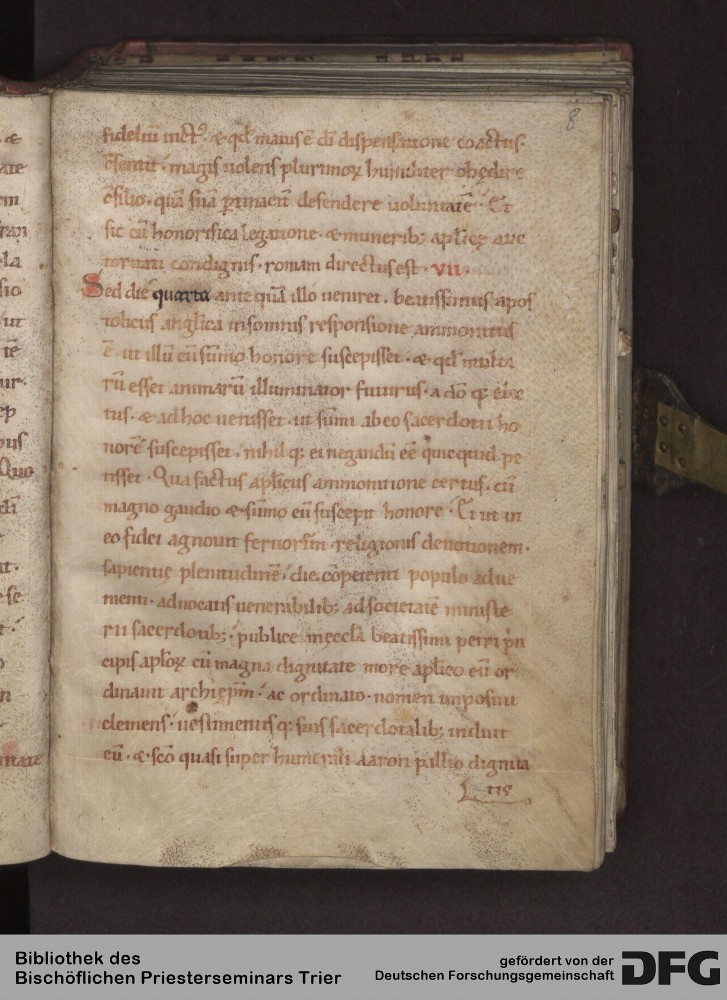 8
fideliū uict⁹. & qđ maius ē dī dispensatione coactus.
c̄sensit. magis uolens plurimoꝝ humiliter obędire
c̄silio. quā suā ꝑtinaciū defendere uoluntatē. Et
sic cū honorifica legatione. & munerib; apl̄icę auc
toritati condignis. romam directus est. VII.
Sed die quarta ante quā illo ueniret. beatissimus apos
tolicus anglica in somnis responsione ammonitus
ē. ut illū cū sūmo honore suscepisset. & qđ multa
rū esset animarū illuminator futurus. a dō q; elec
tus. & ad hoc uenisset. ut sūmi ab eo sacerdotii ho
norē suscepisset. nihil q; ei negandū eē quicquid pe
tisset. Qua factus apl̄icus ammonitione certus. cū
magno gaudio & sūmo eū suscepit honore. Et ut in
eo fidei agnouit feruorē in religionis deuotionem.
sapientię plenitudinē. die cōpetenti populo adue
nienti. aduocatis uenerabilib; ad societatē ministe
rii sacerdotib;. publice in ęccl̄a beatissimi petri pn
cipis apl̄oꝝ cū magna dignitate more apl̄ico eū or
dinauit archiep̄m. ac ordinato. nomen imposuit
clemens. uestimentis q; suis sacerdotalib; induit
eū. & scō quasi super humerali aaron pallio dignita
tis
Bibliothek des
Bischöflichen Priesterseminars Trier
gefördert von der
Deutschen Forschungsgemeinschaft
DFG